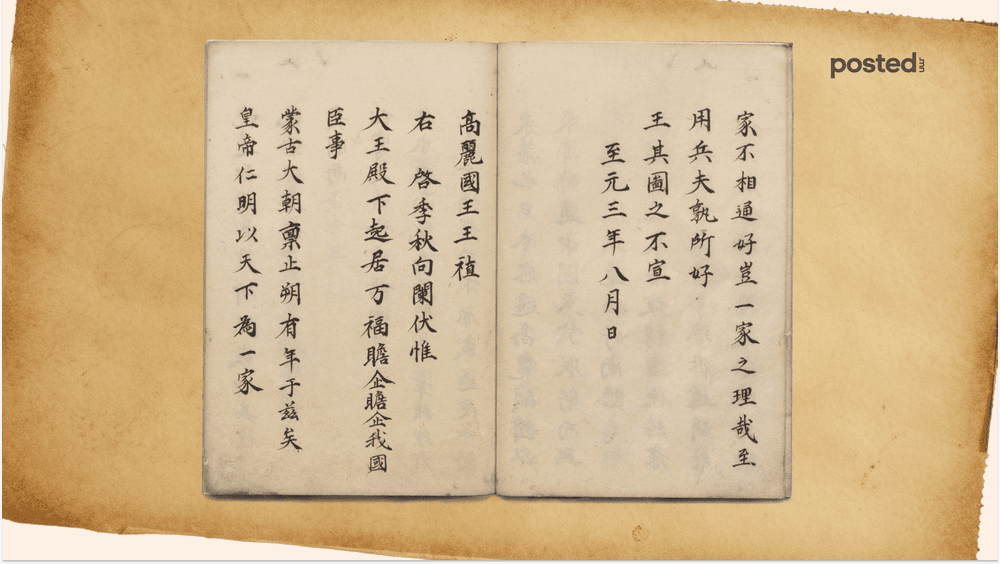 posted
家不相通好豈一家之理哉至
用兵夫孰所好
王其圖之不宣
至元三年八月日
高麗國王王禃
右 啓季秋向闌伏惟
大王殿下起居万福瞻企瞻企我國
臣事
蒙古大朝稟正朔有年于茲矣
皇帝仁明以天下為一家